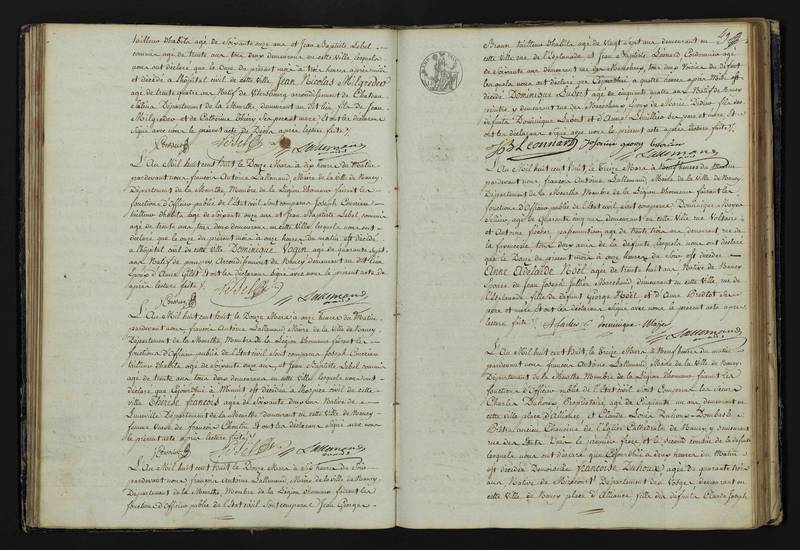 tailleur d'habits agé de Soixante onze ans et Jean Baptiste Lebel
commis agé de trente ans tous deux demeurans en cette Ville lesquels
nous ont déclaré que le Onze du présent mois à
est décédé à l'hôpital civil de cette Ville, Jean Nicolas Milgredev
agé de trente quatre ans Natif de arrondissement de Chateau
Salins, Département de la Meurthe, demeurant au dit lieu fils de Jean
Milgredev et de Catherine ses père et mère et ont les déclarans
Signé avec nous le présent acte de Décès après lecture faite
Lebel Lallemand
L'An Mil huit cent huit le Douze Mars à dix heures du Matin
pardevant nous, françois Antoine Lallemand Maire de la Ville de Nancy,
Département de la Meurthe, Membre de la Légion d'honneur faisant les
fonctions d'Officier public de l'Etat civil sont comparus Joseph
tailleur d'habits agé de Soixante onze ans et Jean Baptiste Lebel, commis
agé de trente ans, tous deux demeurans en cette Ville lesquels nous ont
déclaré que le Onze du présent mois à onze heures du matin est décédé
à l'hôpital civil de cette Ville, Dominique agé de quarante
ans Natif de Arrondissement de Nancy demeurant au dit lieu
Epoux d'Anne et ont les déclarans Signé avec nous le présent acte de
après lecture faite
Lebel Lallemand
L'An Mil huit cent huit le Douze Mars à onze heures du Matin,
pardevant nous, françois Antoine Lallemand Maire de la Ville de Nancy,
Département de la Meurthe, Membre de la Légion d'honneur faisant les
fonctions d'Officier public de l'Etat civil sont comparus Joseph
tailleur d'habits agé de Soixante onze ans, et Jean Baptiste Lebel commis
agé de trente ans tous deux demeurans en cette Ville lesquels nous ont
déclaré que est décédée à l'hospice civil de cette
ville Thérèse françois agée de Soixante douze ans Native de
Lunéville Département de la Meurthe demeurant en cette Ville de Nancy
femme Veuve de françois et ont les déclarans Signé avec nous
le présent acte après lecture faite
Lebel Lallemand
L'An Mil huit cent huit le Douze Mars à six heures du Soir
pardevant nous, françois Antoine Lallemand, Maire de la ville de Nancy,
Département de la Meurthe, Membre de la Légion d'honneur faisant les
fonctions d'Officier public de l'Etat civil sont comparus Jean Georges
49
Braun tailleur d'habits agé de Vingt sept ans demeurant en
cette Ville rue de l'Esplanade et Jean Baptiste Léonard Cordonnier agé
de Soixante ans demeurant rue tous deux Voisins du défunt
lesquels nous ont déclaré que aujourd'hui à quatre heures après Midi est
décédé Dominique Lubert agé de cinquante quatre ans Natif de Nancy
demeurant rue Epoux de Marie Didier fils des
défunts Dominique Lubert et d'Anne ses père et mère. Et
ont les déclarans signé avec nous le présent acte après lecture faite
JB Leonnard georg Lallemand
L'An Mil huit cent huit, le Treize Mars à heures du Matin
pardevant nous, françois Antoine Lallemand, Maire de la Ville de Nancy
Département de la Meurthe Membre de la Légion d'honneur faisant les
fonctions d'Officier public de l'Etat civil sont comparus Dominique Mayer
agé de Quarante cinq ans demeurant en cette Ville rue Voltaire,
et Antoine agé de trente trois ans demeurant rue de
la tous deux amis de la défunte lesquels nous ont déclaré
que le Douze du présent mois à onze heures du Soir est décédée
Anne Adelaïde Noël agée de trente huit ans Native de Nancy
Epouse de Jean Joseph Marchand demeurant en cette ville, rue de
l'Esplanade, fille du défunt George Noël, et d'Anne ses
père et mère. Et ont les déclarans signé avec nous le présent acte après
lecture faite. Dominique Mayer
Lallemand
L'An Mil huit cent huit, le Treize Mars à neuf heures du matin
pardevant nous françois Antoine Lallemand, Maire de la Ville de Nancy
Département de la Meurthe, Membre de la Légion d'honneur faisant les
fonctions d'Officier public de l'Etat civil sont Comparus les Sieurs
Charles Duhoux, Propriétaire, agé de Cinquante un ans demeurant en
cette ville place d'alliance, et Claude Louis Duhoux Dombasle
Prêtre ancien Chanoine de l'Eglise Cathédrale de Nancy, y demeurant
rue le premier frère, et le second cousin de la défunte
lesquels nous ont déclaré que Cejourd'hui à deux heures du Matin
est décédée Demoiselle françoise Duhoux agée de quarante trois
ans Native de Mirecourt Département des Vosges, demeurant en
cette Ville de Nancy place d'Alliance, fille des défunts Claude Joseph